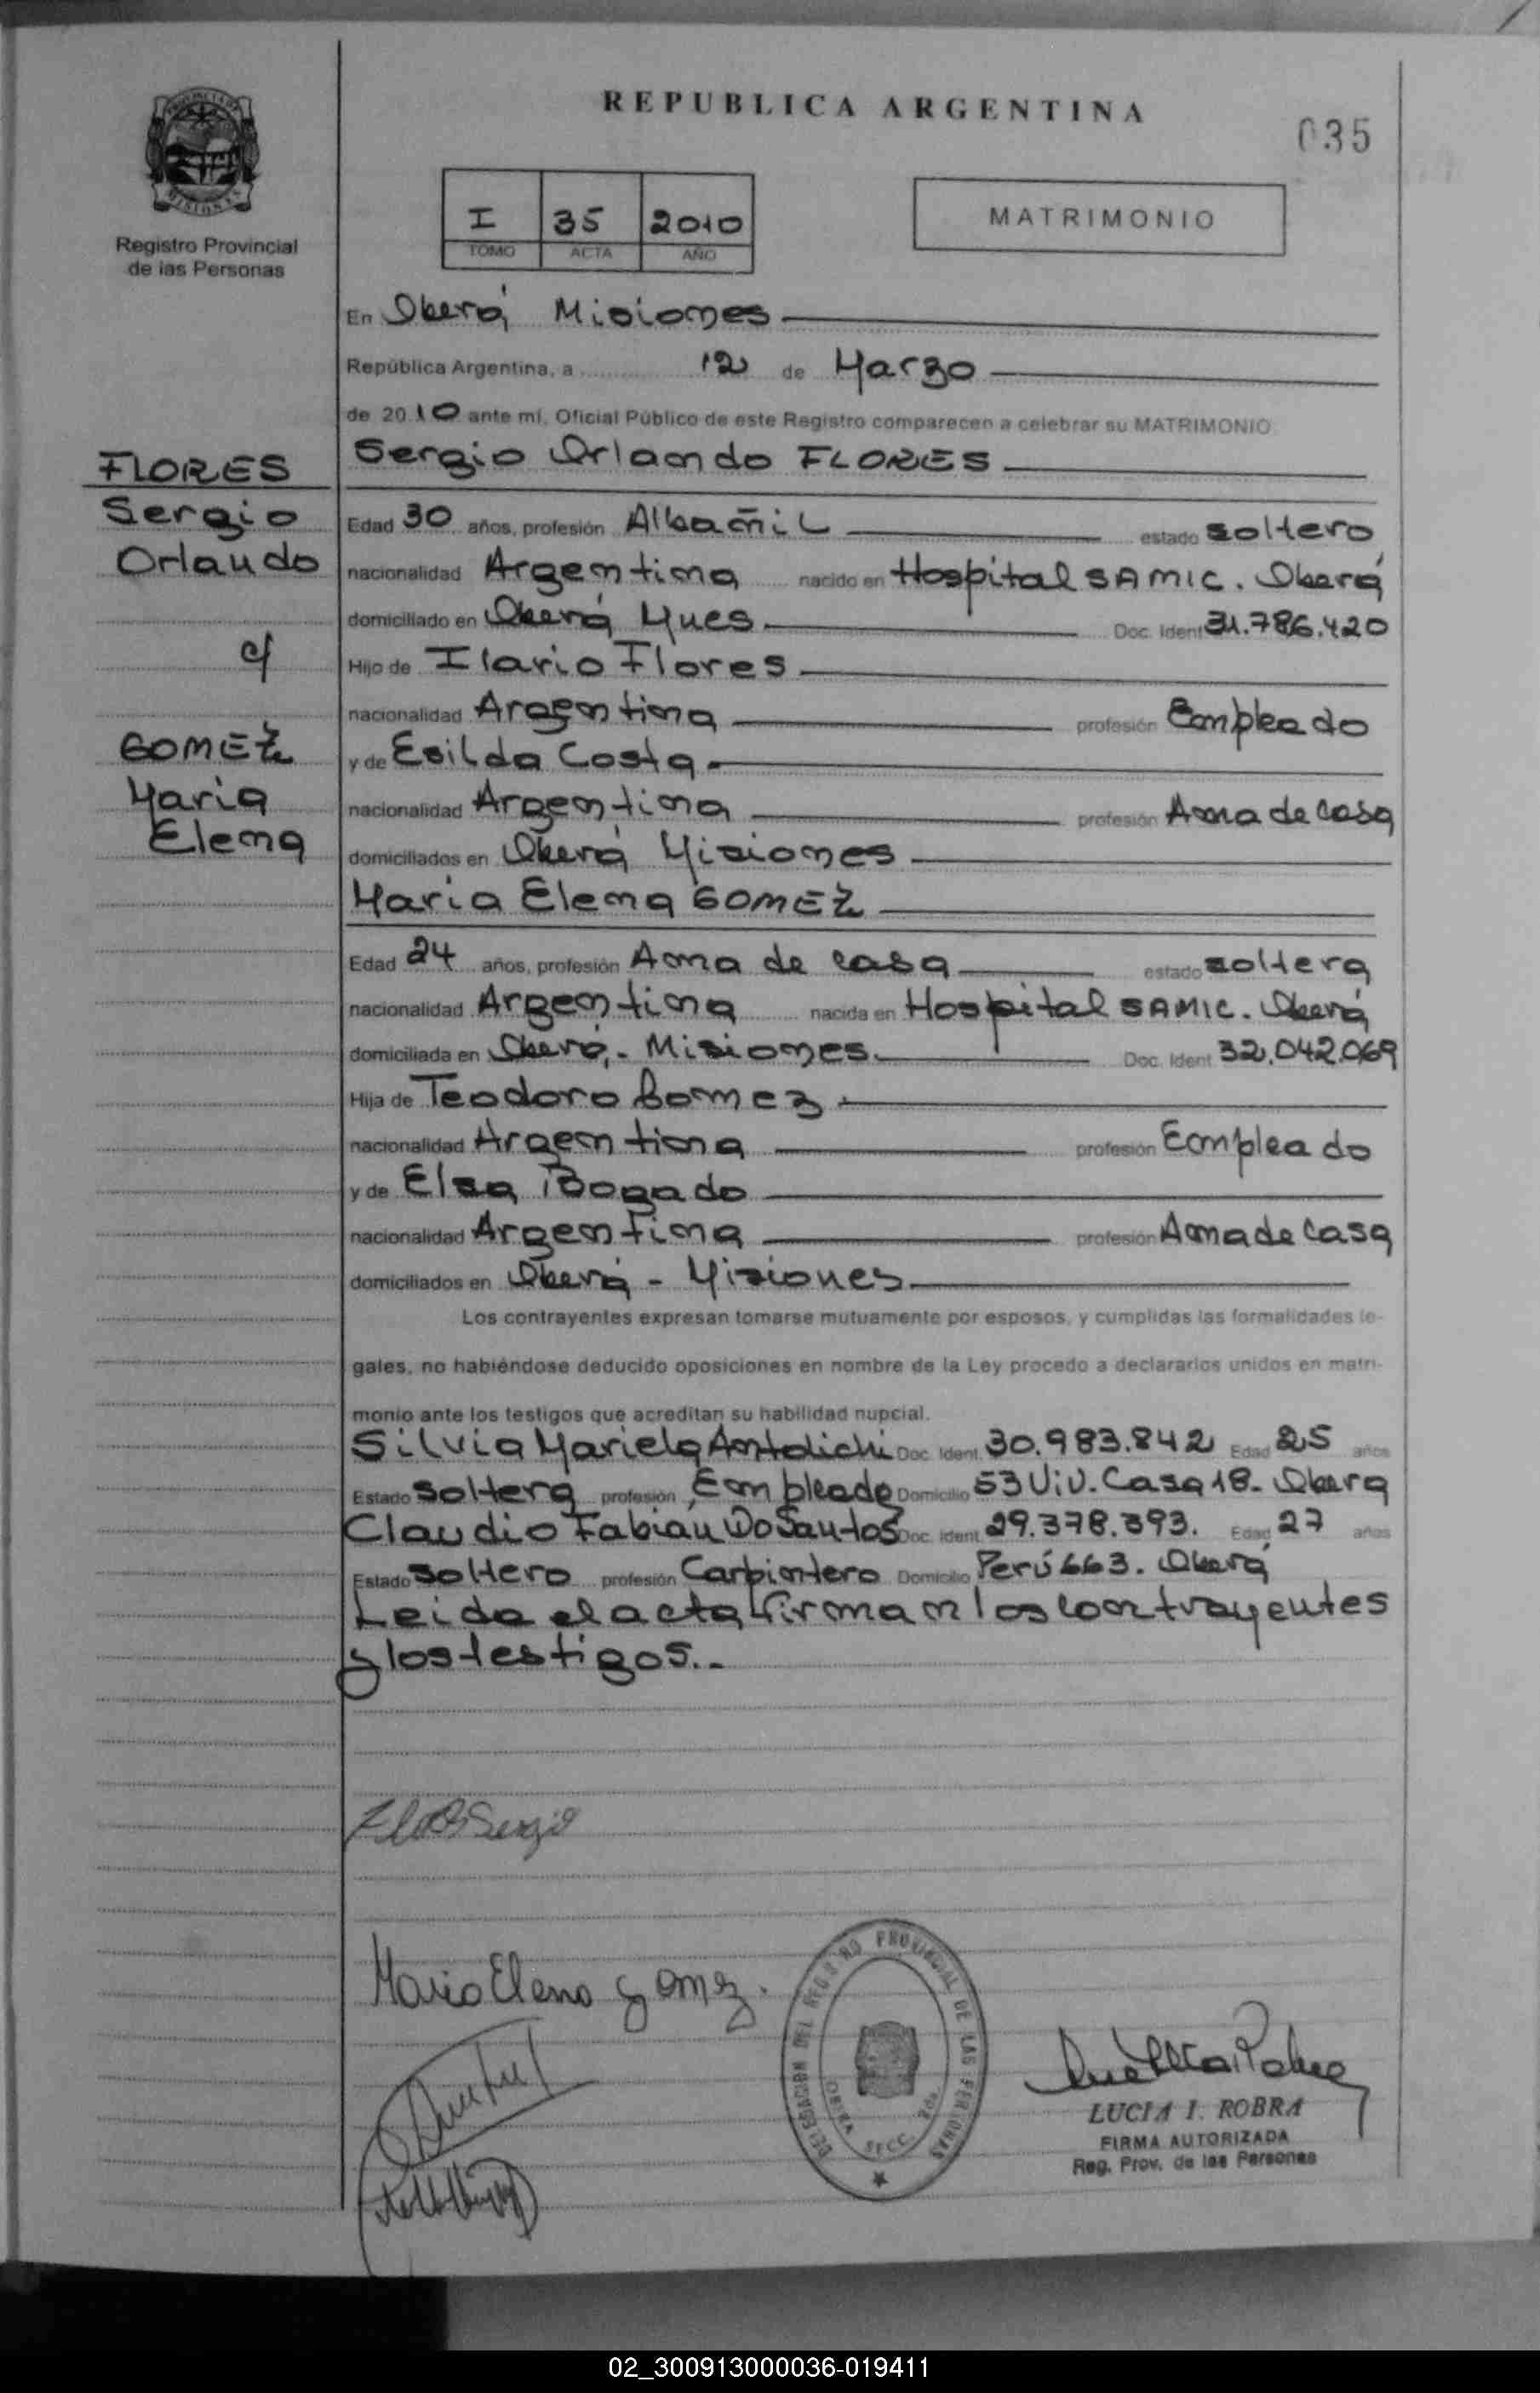 REPUBLICA ARGENTINA
035
PROVINCIA DE
MISIONES
Registro Provincial
de las Personas
I 35 2010
TOMO ACTA AÑO
MATRIMONIO
En Oberá Misiones
República Argentina, a 12 de Marzo
de 2010 ante mí, Oficial Público de este Registro comparecen a celebrar su MATRIMONIO
Sergio Orlando FLORES
FLORES
Sergio
Orlando
c/
GOMEZ
Maria
Elena
Edad 30 años, profesión Albañil estado soltero
nacionalidad Argentina nacido en Hospital SAMIC. Oberá
domiciliado en Oberá Mnes Doc. Ident 31.786.420
Hijo de Ilario Flores
nacionalidad Argentina profesión Empleado
y de Esilda Costa
nacionalidad Argentina profesión Ama de casa
domiciliados en Oberá Misiones
Maria Elena GOMEZ
Edad 24 años, profesión Ama de casa estado soltera
nacionalidad Argentina nacida en Hospital SAMIC. Oberá
domiciliada en Oberá - Misiones. Doc. Ident 32.042.069
Hija de Teodoro Gomez
nacionalidad Argentina profesión Empleado
y de Elsa Bogado
nacionalidad Argentina profesión Ama de Casa
domiciliados en Oberá - Misiones
Los contrayentes expresan tomarse mutuamente por esposos, y cumplidas las formalidades le-
gales, no habiéndose deducido oposiciones en nombre de la Ley procedo a declararlos unidos en matri-
monio ante los testigos que acreditan su habilidad nupcial.
Silvia Mariela Antolichi Doc. Ident. 30.983.842 Edad 25 años
Estado Soltera profesión Empleada Domicilio 53 Viv. Casa 18. Oberá
Claudio Fabian Do Santos Doc. Ident 29.378.393. Edad 27 años
Estado Soltero profesión Carpintero Domicilio Perú 663. Oberá
Leida el acta firman los contrayentes
y los testigos..
Flores Sergio
Maria Elena Gomez.
DELEGACION DEL REGISTRO PROVINCIAL DE LAS PERSONAS
OBERA SECC. 2da
LUCIA I. ROBRA
FIRMA AUTORIZADA
Reg. Prov. de las Personas
02_300913000036-019411